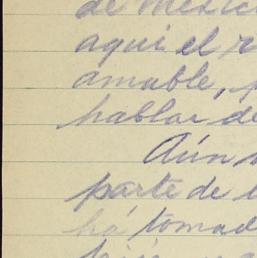 de México
aqui el
amable,
hablar de
Aún
parte de
há tomad